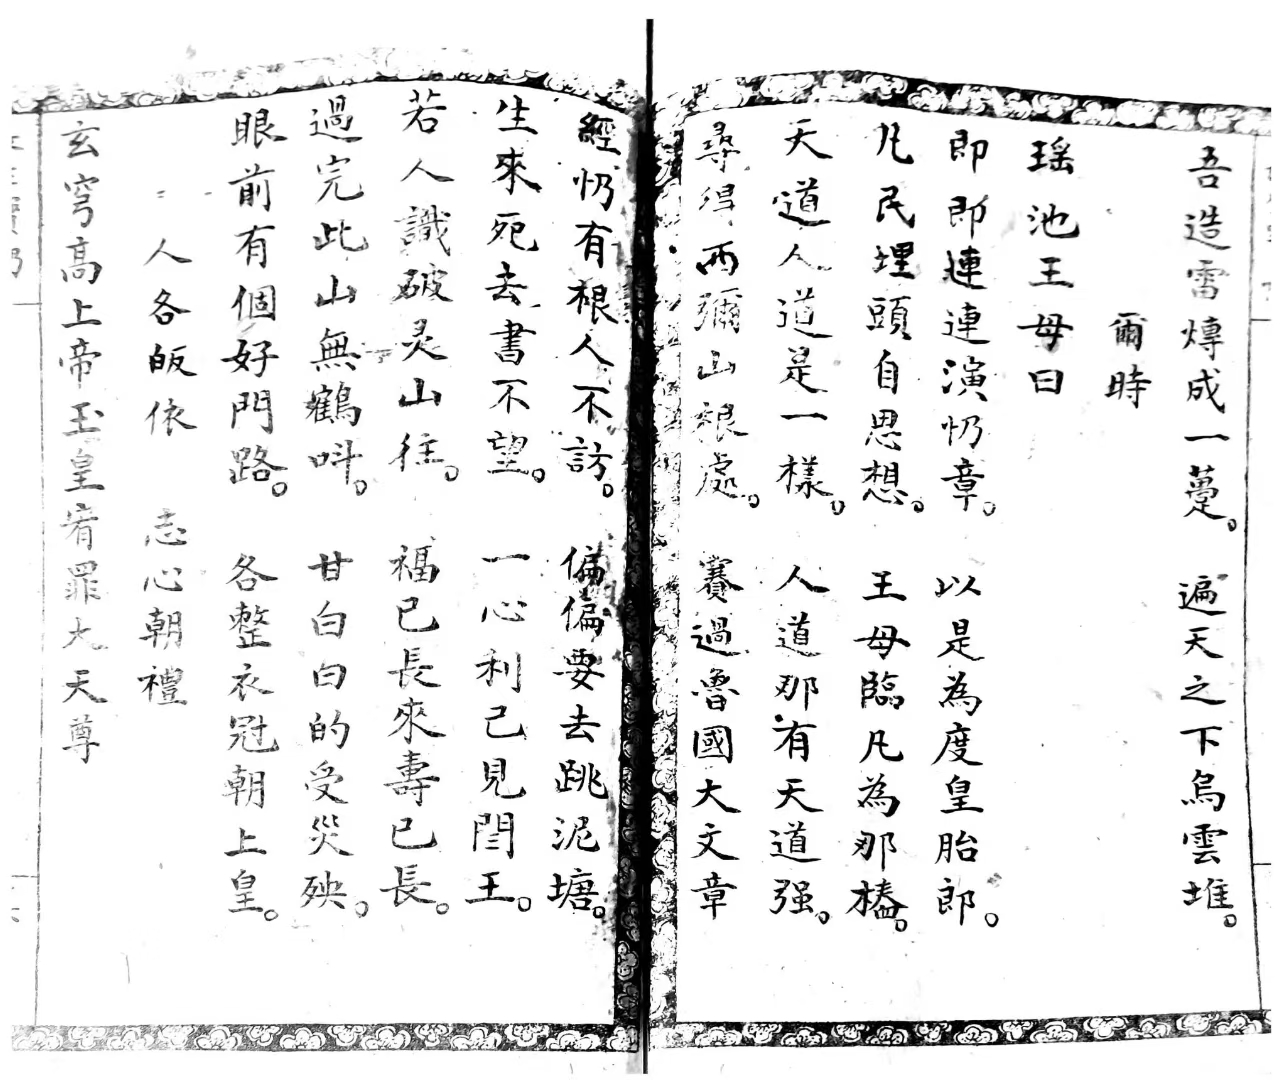 吾造雷㷟成一躉。 遍天之下烏雲堆。
爾時
瑶池王母曰
即即連連演忉章。 以是為度皇胎郎。
凡民埋頭自思想。 王母臨凡為那樁。
天道人道是一樣。 人道那有天道强。
尋得西彌山根處。 賽過魯國大文章
經忉有根人不訪。 偏偏要去跳泥塘。
生來死去書不望。 一心利己見閆王。
若人識破灵山往。 福已長來壽已長。
過完此山無鶴呌。 甘白白的受災殃。
眼前有個好門路。 各整衣冠朝上皇。
人各皈依 志心朝禮
玄穹高上帝玉皇宥罪大天尊